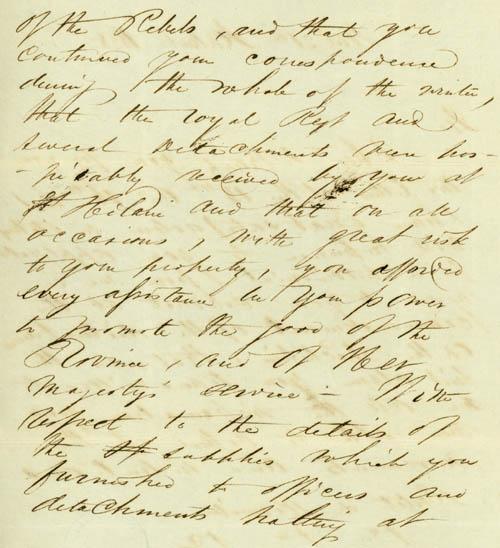 of the Rebels, and that you
continued your correspondence
during the whole of the winter,
that the royal Regt and
several detachments were hos-
-pitably received by you at
St Hilaire and that on all
occasions, with great risk
to your property, you afforded
every assistance in your power
to promote the good of the
Province, and of Her
Majesty's service - With
respect to the details of
the supplies which you
furnished to officers and
detachments halting at